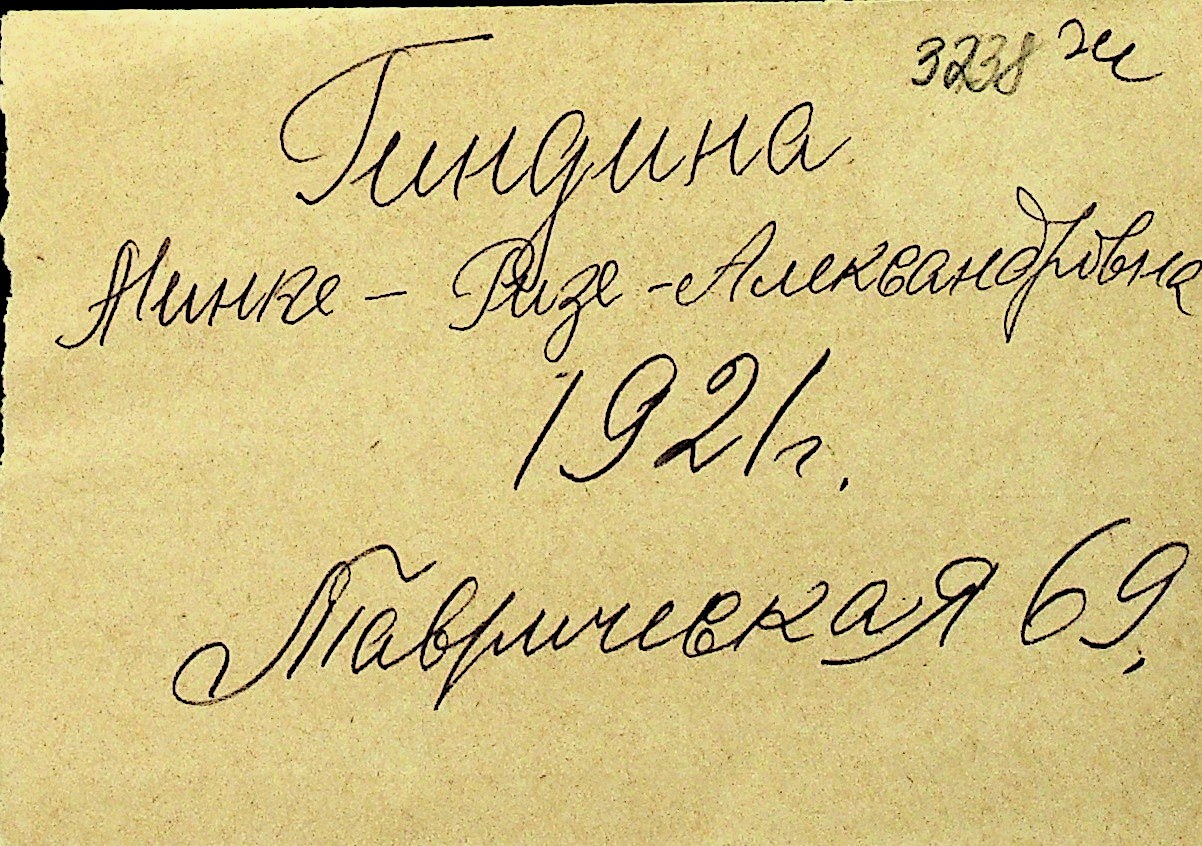 3238 ж
Гиндина
Минке - Ризе - Александровна
1921г.
Таврическая 69.